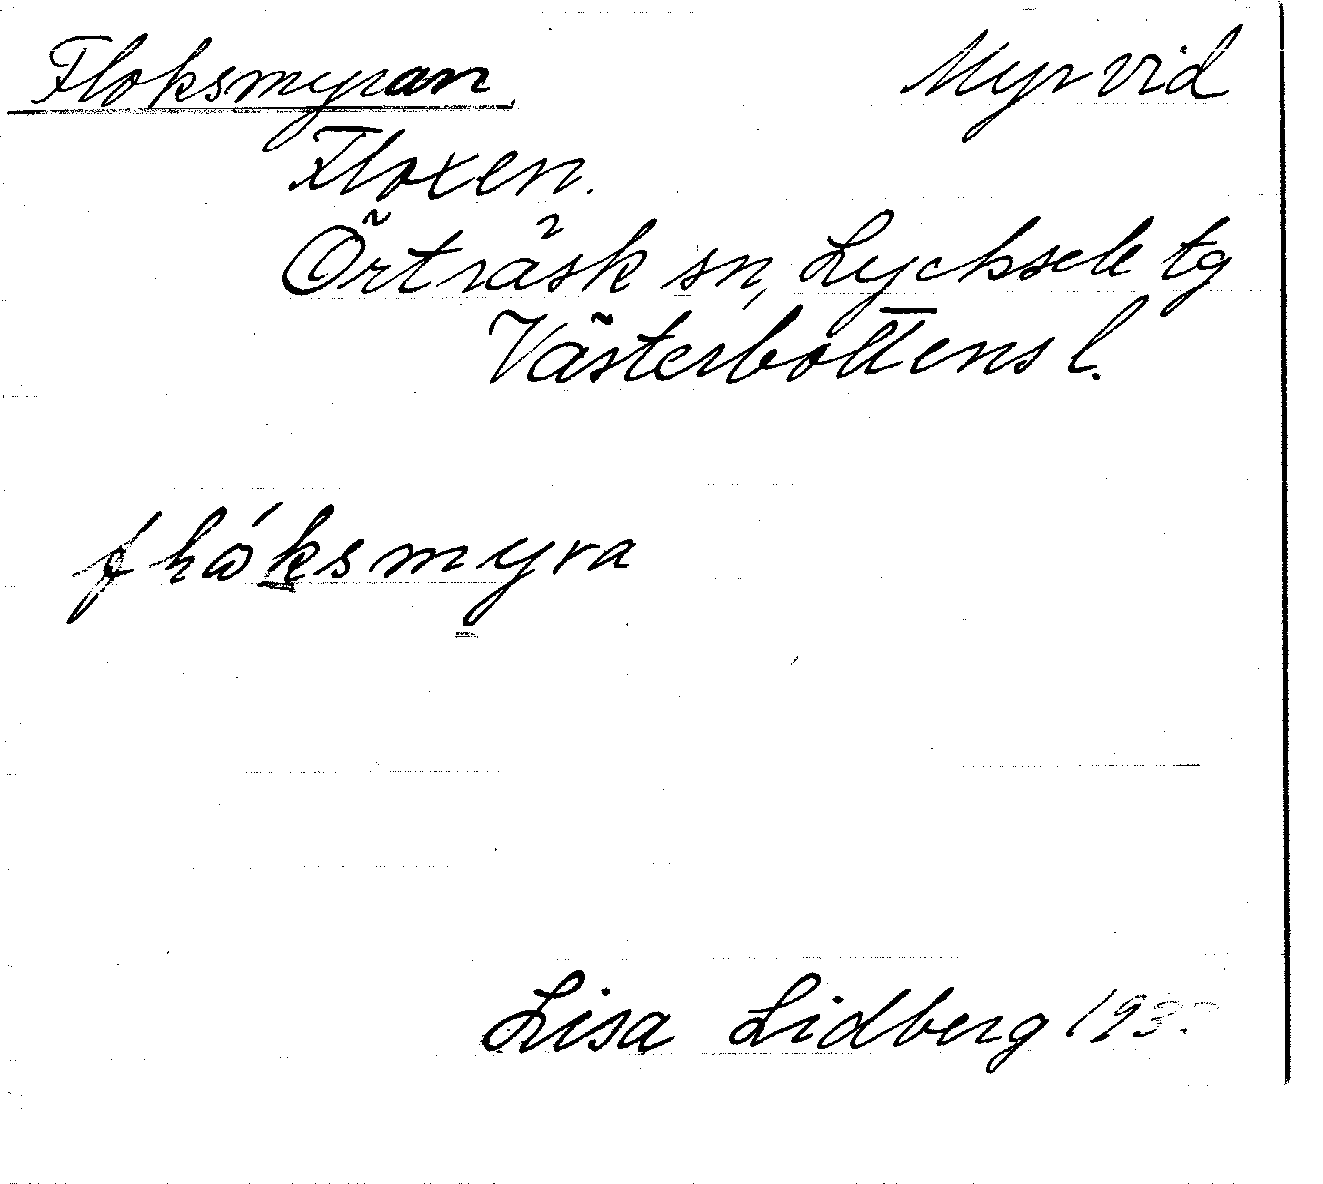 Floksmyran Myr vid
Floxen.
Örträsk sn, Lycksele tg
Västerbottens l.
fhåksmyra
Lisa Lidberg